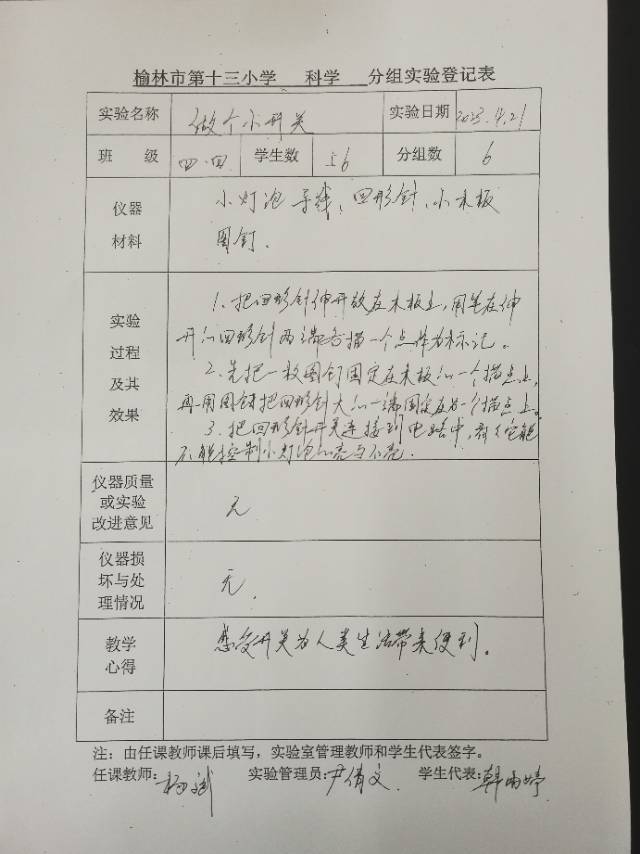 榆林市第十三小学 科学 分组实验登记表
实验名称 做个小开关 实验日期 2023.4.21
班 级 四.四 学生数 56 分组数 6
仪器 小灯泡 导线、回形针、小木板
材料 图钉.
实验
过程
及其
效果
1、把回形针伸开放在木板上,用笔在伸
开的回形针两端各描一个点作为标记。
2、先把一枚图钉固定在木板的一个描点上,
再用图钉把回形针大的一端固定在另一个描点上。
3、把回形针开关连接到电路中,看看它能
不能控制小灯泡的亮与不亮.
仪器质量
或实验
改进意见
无
仪器损
坏与处
理情况
无.
教学
心得
感受开关为人类生活带来便利。
备注
注:由任课教师课后填写,实验室管理教师和学生代表签字。
任课教师: 杨斌 实验管理员: 尹倩文 学生代表: 韩雨婷